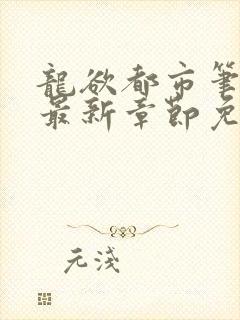 龍欲都市筆
最新章節免
元淺